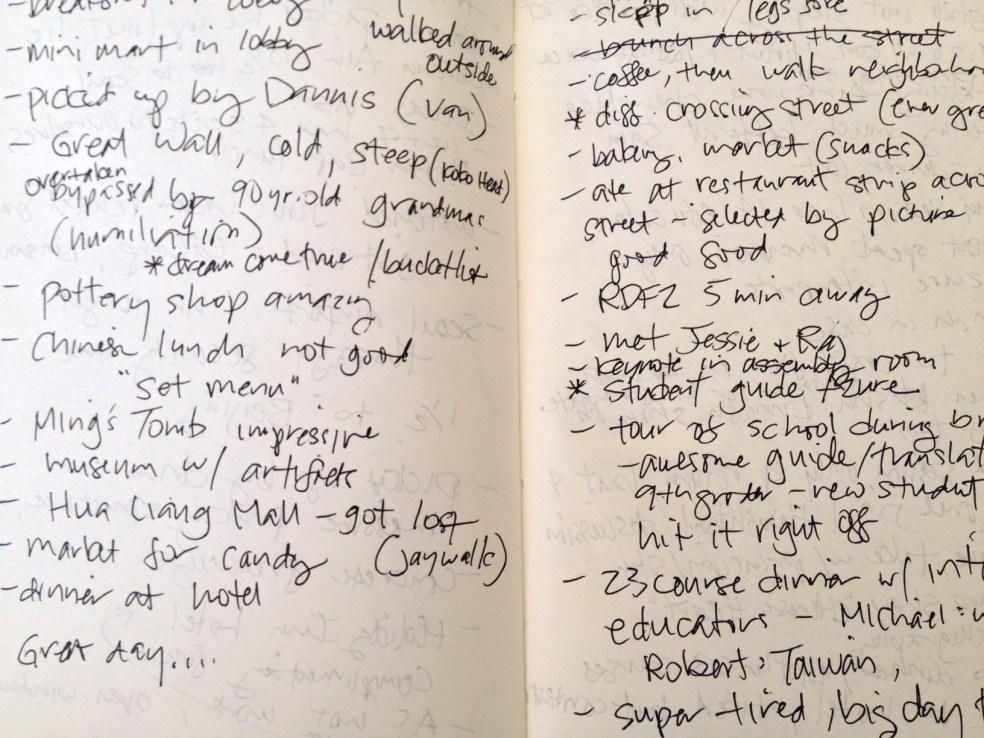 - mini mart in lobby walked around outside
- picked up by Dannis (van)
- Great Wall, cold, steep (Koko Head)
overtaken
bypassed by 90 yr. old grandmas
(humiliation)
* dream come true / bucketlist
- pottery shop amazing
- Chinese lunch not good
"set menu"
- Ming's Tomb impressive
- museum w/ artifacts
- Hua Liang Mall - got lost
- market for candy (jaywalk)
- dinner at hotel
Great day....
- sleep in / legs sore
- brunch across the street
- coffee, then walk neighborhoo
* diff. crossing street (even gre
- bakery, market (snacks)
- ate at restaurant strip acro
street - selected by picture
good food
- RDFZ 5 min away
- met Jessie + Raj
- keynote in assembly room
* student guide Azure
- tour of school during br
- awesome guide/translat
9th grader - new student
hit it right off
- 23 course dinner w/ int
educators - Michael:
Robert: Taiwan
- super tired, big day